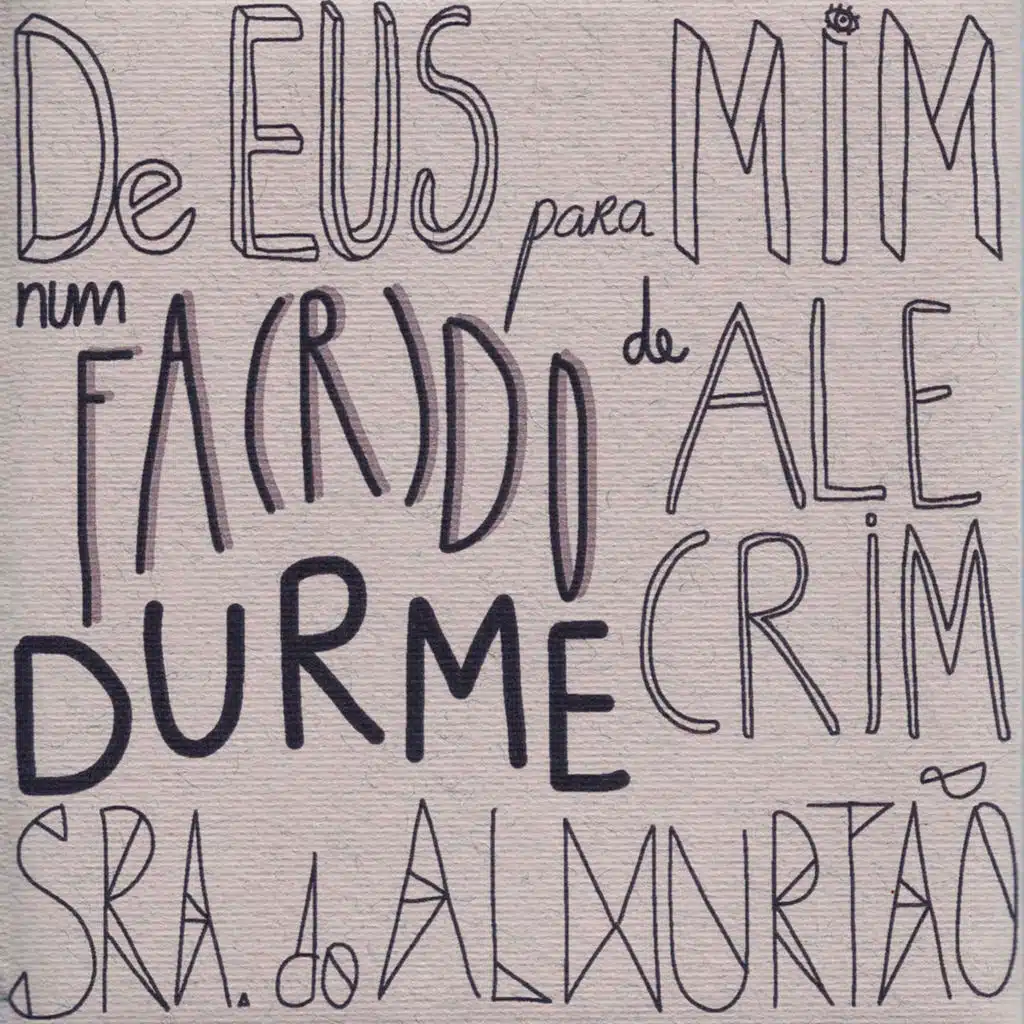 De EUS para MiM
num FA(R)DO de ALE
CRiM
DURME
SRA. do ALMURTÃO